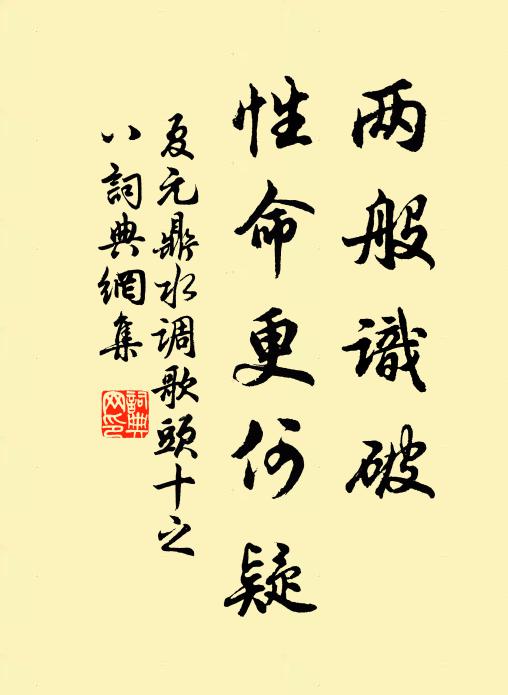 两般識破
性命更何疑
夏元鼎水调歌頭十之
八詞典網集
詞典网印